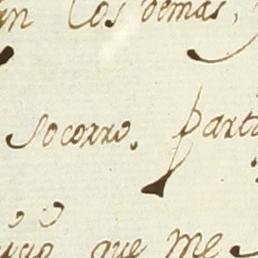 los demas,
socorro. part
que me